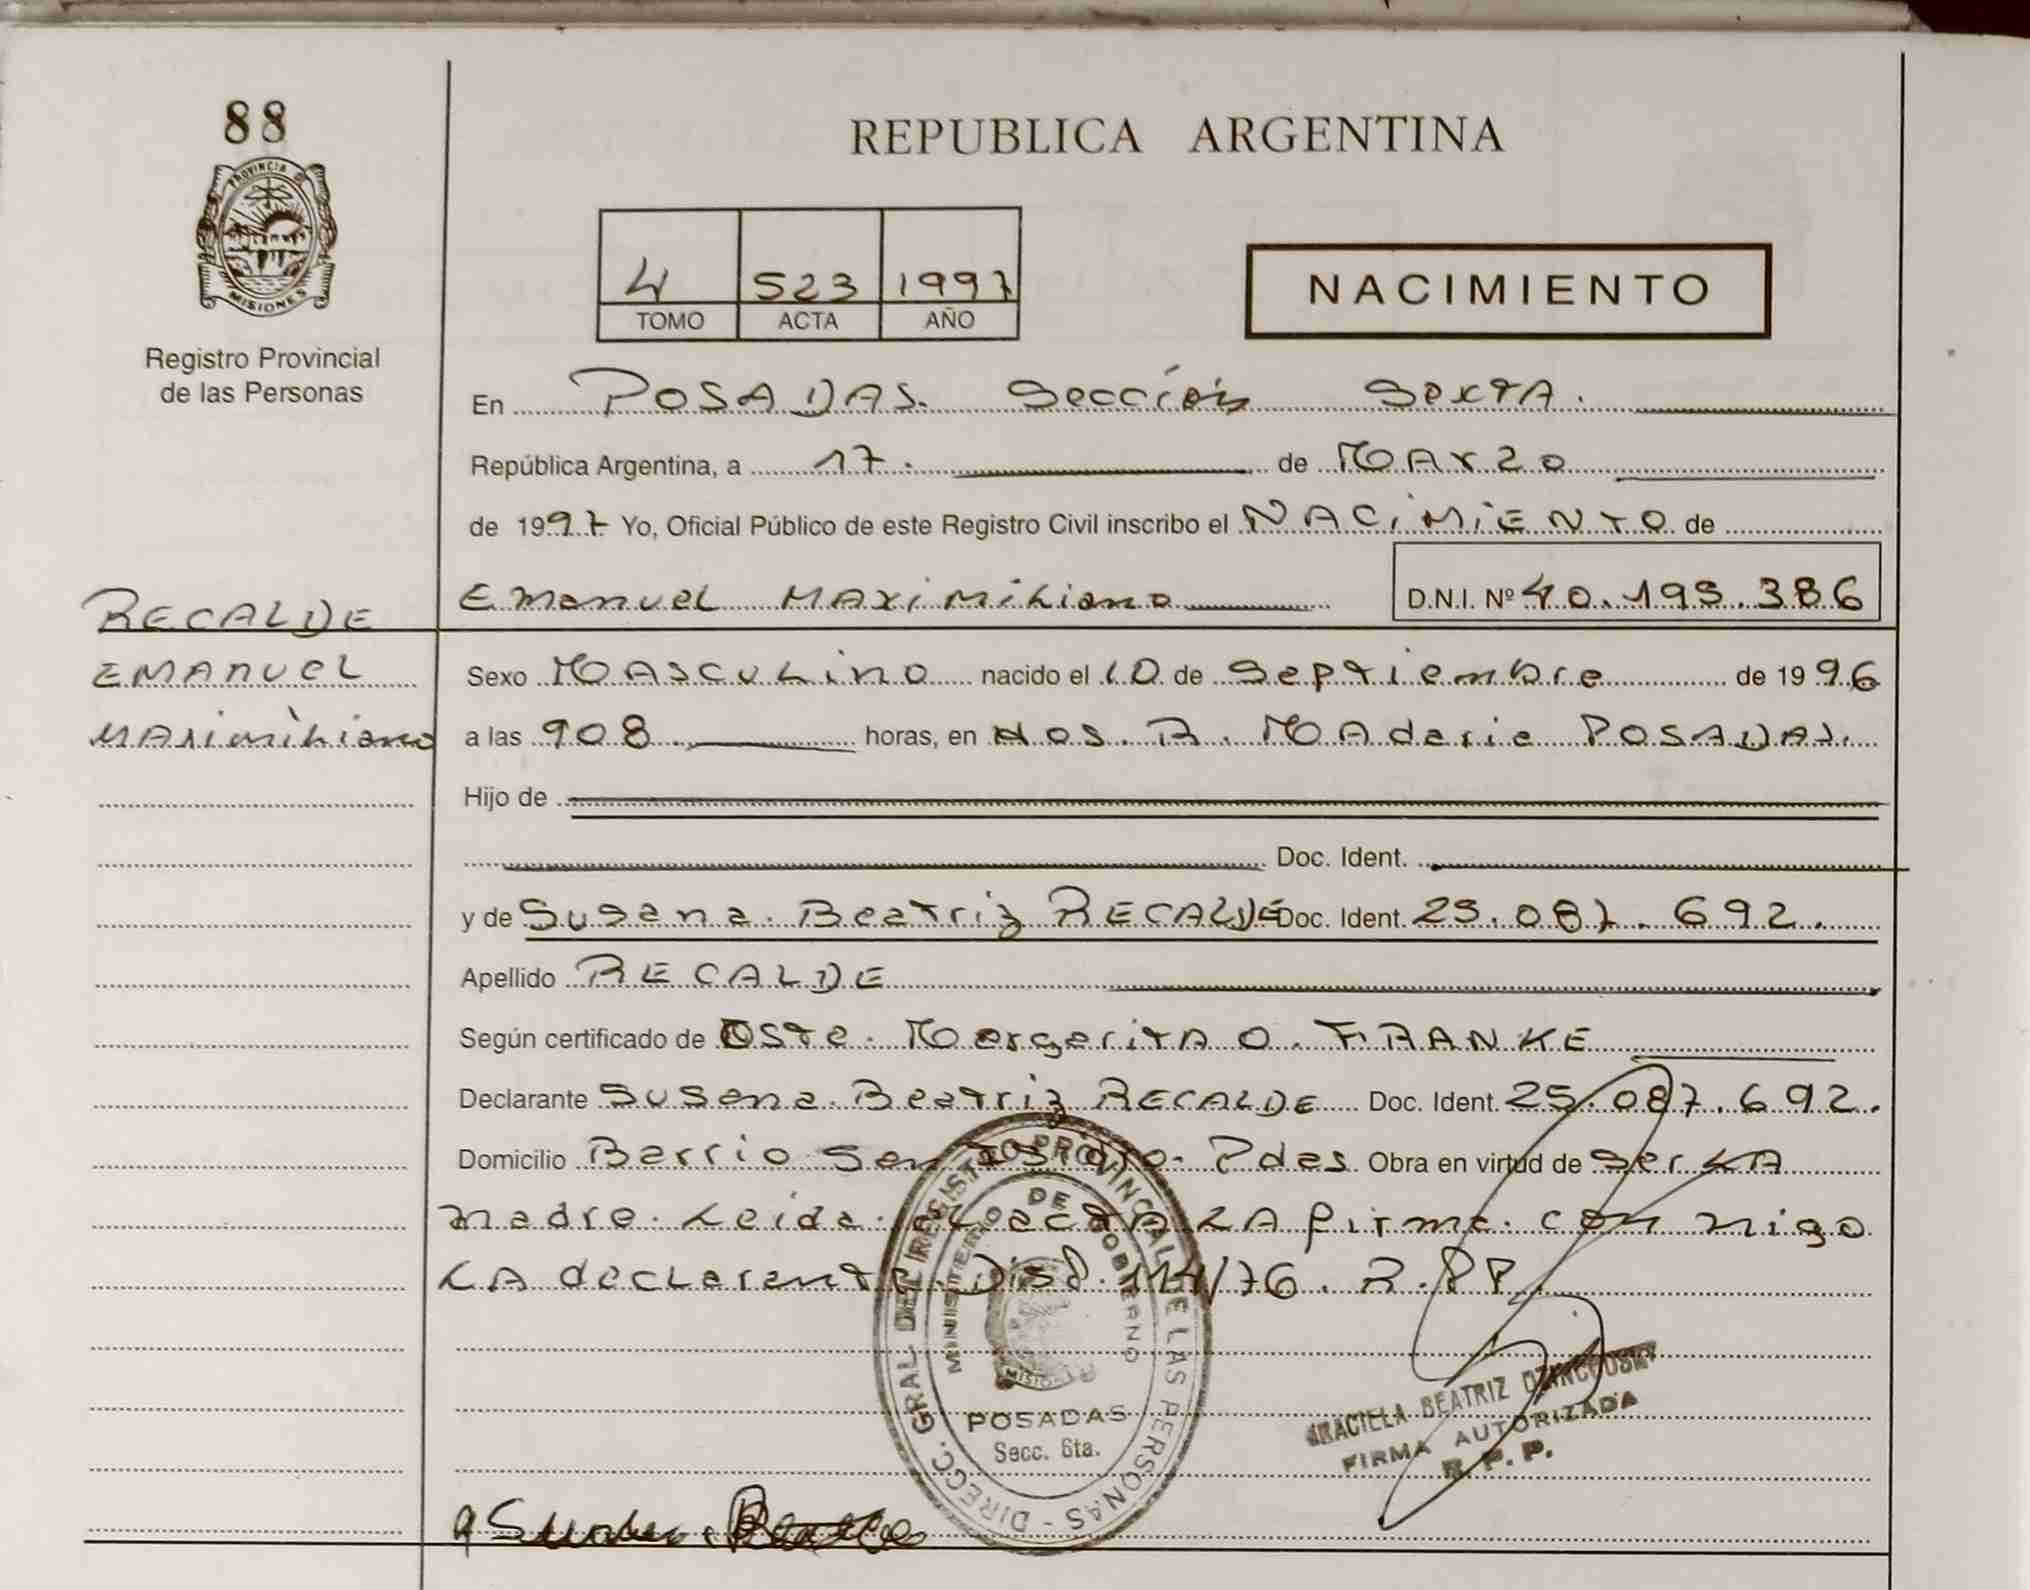 88
PROVINCIA DE
MISIONES
Registro Provincial
de las Personas
REPUBLICA ARGENTINA
4 523 1997
TOMO ACTA AÑO
NACIMIENTO
En POSADAS. Sección Sexta.
República Argentina, a 17. de Marzo
de 1997 Yo, Oficial Público de este Registro Civil inscribo el NACIMIENTO de
RECALDE
Emanuel Maximiliano D.N.I. Nº 40.195.386
EMANUEL
Sexo Masculino nacido el 10 de Septiembre de 1996
Maximiliano
a las 908 horas, en Hos. R. Madaria POSADAS.
Hijo de
Doc. Ident.
y de Susana Beatriz RECALDE Doc. Ident. 25.087.692.
Apellido RECALDE
Según certificado de Oste. Margarita O. FRANKE
Declarante Susana Beatriz RECALDE Doc. Ident. 25.087.692.
Domicilio Barrio San Isidro - Pdas Obra en virtud de ser LA
madre. Leida el acta LA firma con migo
LA declarante. Disp. 114/76. R.PP.
DIRECC. GRAL DEL REGISTRO PROVINCIAL DE LAS PERSONAS -
MINISTERIO DE GOBIERNO
MISIONES
POSADAS
Secc. 6ta.
GRACIELA BEATRIZ
FIRMA AUTORIZADA
R. P. P.